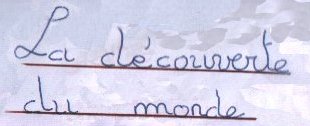 La découverte
du monde